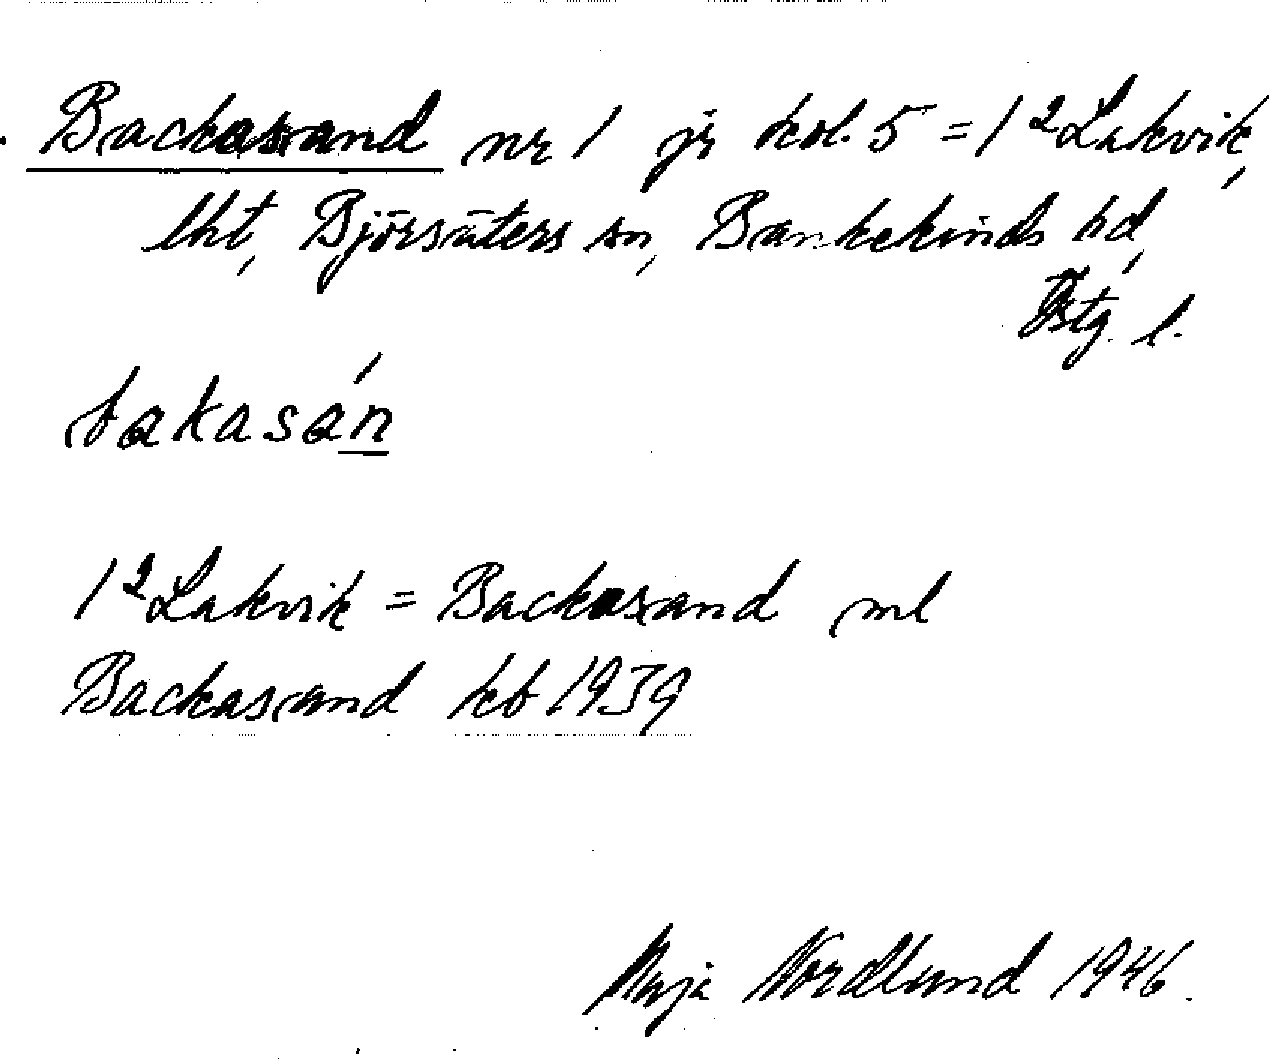 Backasand nr 1 jr kol. 5 = 1² Lakvik,
lht, Björsäters sn, Bankekinds hd,
Östg. l.
bakasán
1² Lakvik = Backasand ml
Backasand kb 1939
Maja Nordlund 1946.